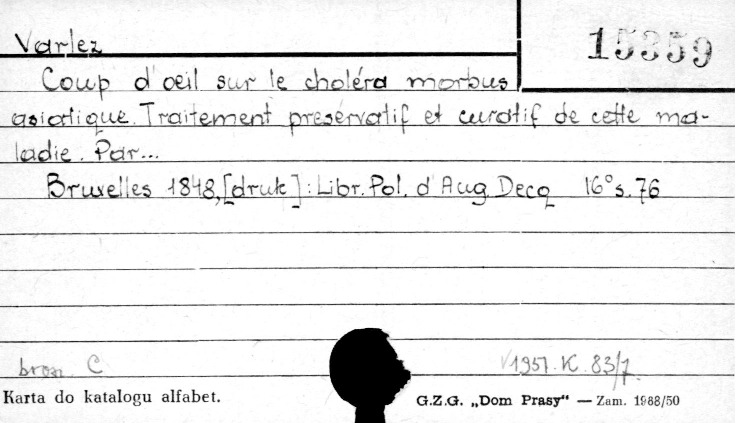 Varlez
15359
Coup d'oeil sur le choléra morbus
asiatique. Traitement preservatif et curatif de cette ma-
ladie. Par...
Bruxelles 1848, [druk]: Libr. Pol. d'Aug. Decq 16° s. 76
brosz. C
1951. K. 83/7.
Karta do katalogu alfabet.
G.Z.G. „Dom Prasy“ — Zam. 1968/50